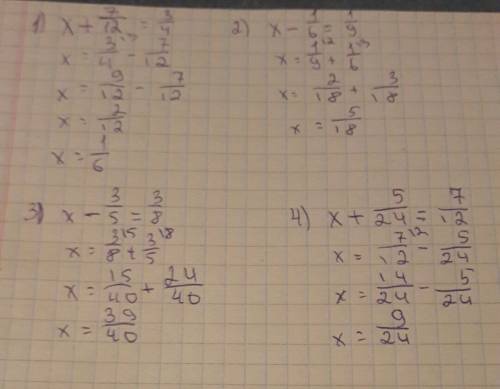 1) x + 7/12 = 3/4
x = 3/4 - 7/12
x = 9/12 - 7/12
x = 2/12
x = 1/6
2) x - 1/6 = 1/9
x = 1/9 + 1/6
x = 2/18 + 3/18
x = 5/18
3) x - 3/5 = 3/8
x = 3/8 + 3/5
x = 15/40 + 24/40
x = 39/40
4) x + 5/24 = 7/12
x = 7/12 - 5/24
x = 14/24 - 5/24
x = 9/24